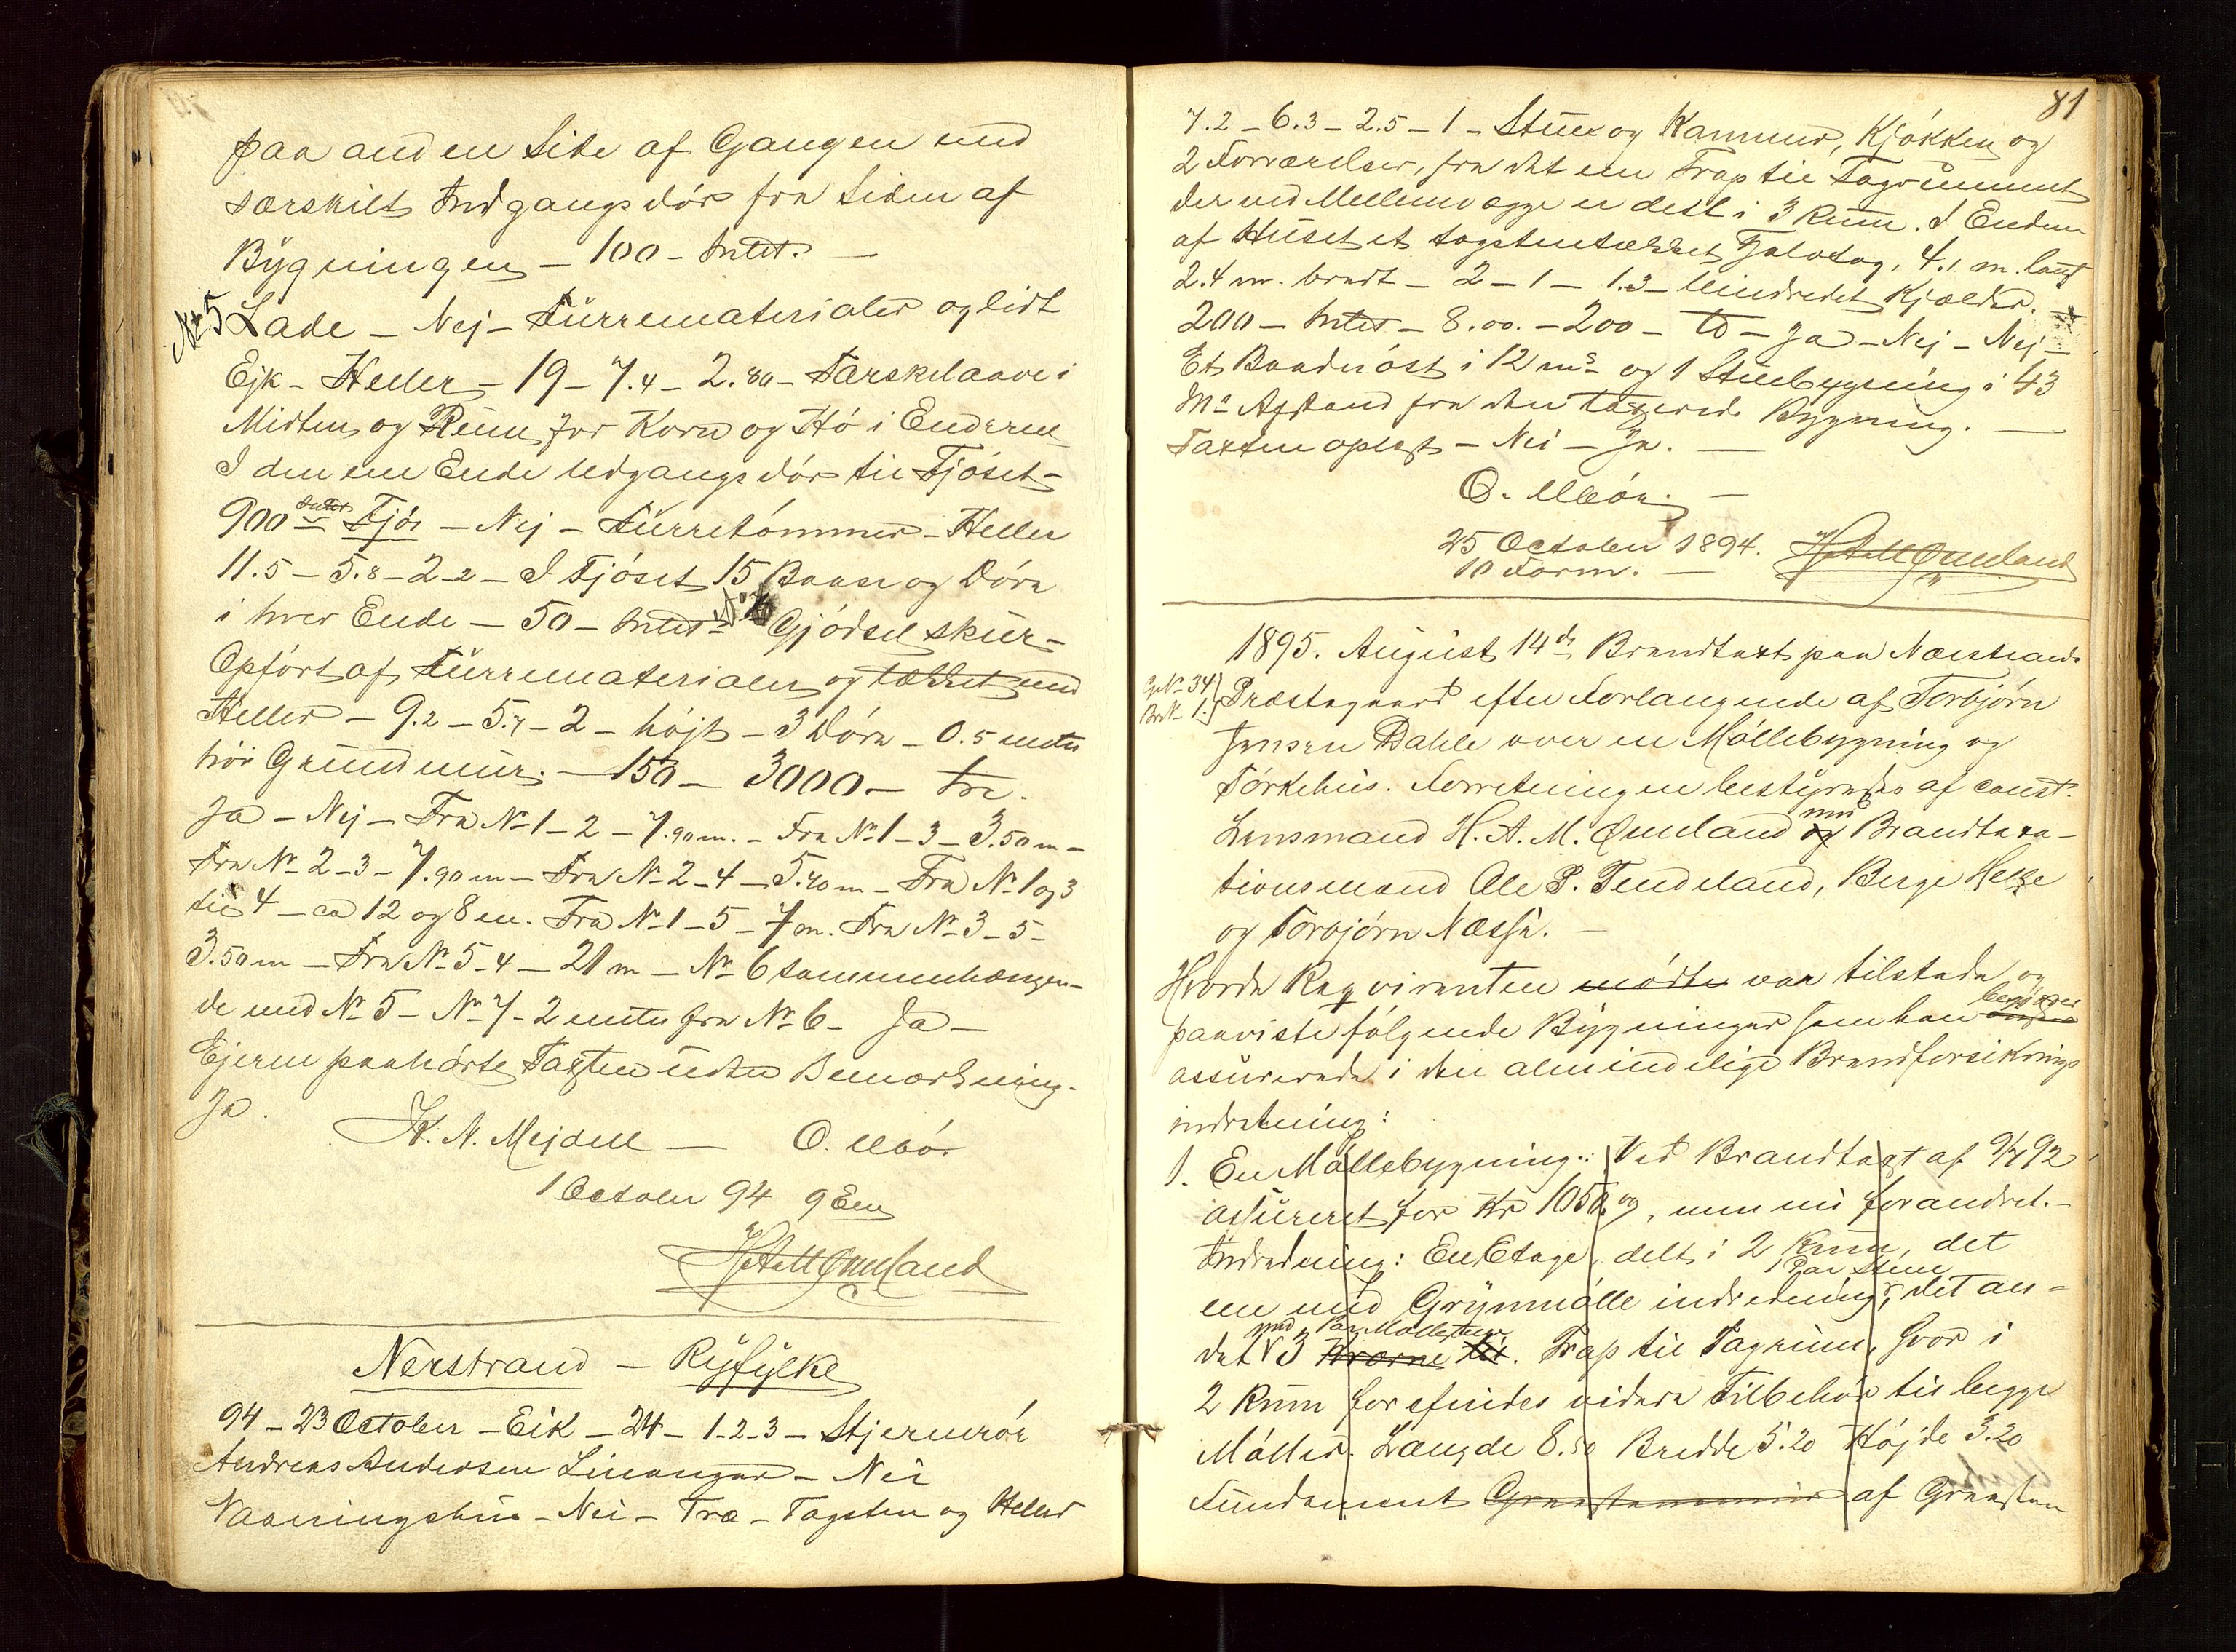 paa anden Side af Gangen med
særskilt Indgangsdør fra Siden af
Bygningen – 100 – Intet. –
No 5 Lade – Nej – Furrematerialer og lidt
Ejk – Heller – 19 – 7.4 – 2.80 – Tærskelaave i
Midten og Rum for Korn og Hø i Enderne
I den ene Ende Udgangsdør til Fjøset –
900 Intet Fjøs – Nej – Furretømmer – Heller
11.5 – 5.8 – 2.2 – I Fjøset 15 Baase og Døre
i hver Ende – 50 – Intet – No 7 Gjødselskur –
Opført af Furrematerialer og tækket med
Heller – 9.2 – 5.7 – 2 – højt – 3 Døre – 0.5 meter
høi Grundmur. – 150 – 3000 – tre.
Ja – Nej – Fra No 1 – 2 – 7.90 m. – Fra No 1 – 3 – 3.50 m –
Fra No 2 – 3 – 7.90 m – Fra No 2 – 4 – 5.40 m – Fra No 1 og 3
til 4 – ca 12 og 8 m. Fra No 1 – 5 – 7 m. Fra No 3 – 5 –
3.50 m – Fra No 5 – 4 – 21 m – No 6 sammenhængen-
de med No 5 – No 7 – 2 meter fra No 6 – Ja –
Ejeren paahørte Taxten uden Bemærkning.
Ja.
K. N. Mejdell – O. Obø.
1 October 94 9 Em
H A M Ømeland
Nerstrand – Ryfylke
94 – 23 October – Eik – 24 – 1-2-3 – Stjernerør
Andreas Andersen – Nei
Vaaningshus – Nei – Træ – Tagsten og Heller
81
7.2 – 6.3 – 2.5 – 1 – Stue og Kammer, Kjøkken og
2 Forværelser, fra det ene Trap til Tagrummet
der ved Mellemvægge er delt i 3 Rum. I Enden
af Huset et tagstentækket Halvtag, 4.1 m. langt
2.4 m. bredt – 2 – 1 – 1.3 – Uindredet Kjælder. –
200 – Intet – 8.00. – 200 – to – Ja – Nej – Nej –
Et Baadnøst i 12 ms og 1 Stuebygning i 43
Ms Afstand fra den taxerede Bygning. –
Taxten oplæst – Nei – Ja. –
O. Obøn. –
25 October 1894. H A M Ømeland
10 Form. –
1895. August 14de Brandtaxt paa Nærstrands
G No 34 Br No 1. Præstegaard efter Forlangende af Torbjørn
Jensen Dahle over en Møllebygning og
Tørkehus. Forretningen bestyredes af const.
Lensmand H. A. M. Ømeland og med Brandtaxa-
tionsmænd Ole P. Tendeland, Berge Helle
og Torbjørn Næssa. –
Hvorda Reqvirenten mødte var tilstede og
paaviste følgende Bygninger som han begjærer
assurerede i den almindelige Brandforsikrings
indretning:
1. En Møllebygning: Ved Brandtaxt af 9/7 92
assureret for Kr 1050.00, men nu forandret. –
Indredning: En Etage, delt i 2 Rum, det
ene med Grynmølle indredning, 1 Par Stene det an-
det V 3 med Par Møllestene Kværne til. Trap til Tagrum, hvor i
2 Rum forefindes videre Tilbehør til begge
Møller. Længde 8.50 Bredde 5.20 Højde 3.20
Fundament Graastensmur af Graasten